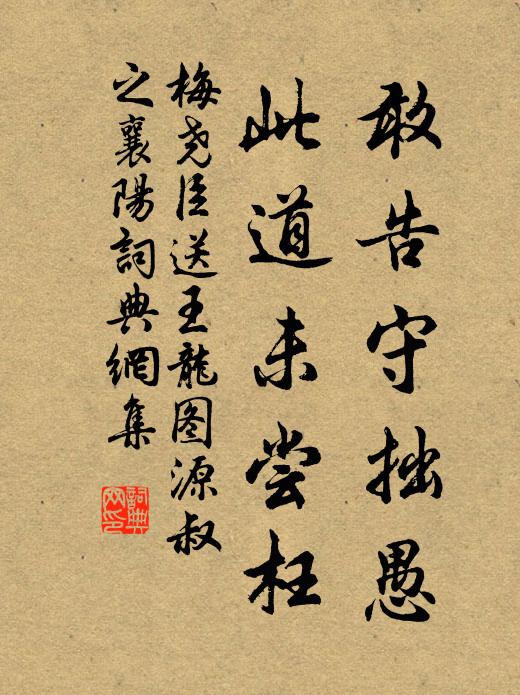 敢告守拙愚
此道未尝枉
梅尧臣送王龍图源叔
之襄陽詞典網集
詞典网印